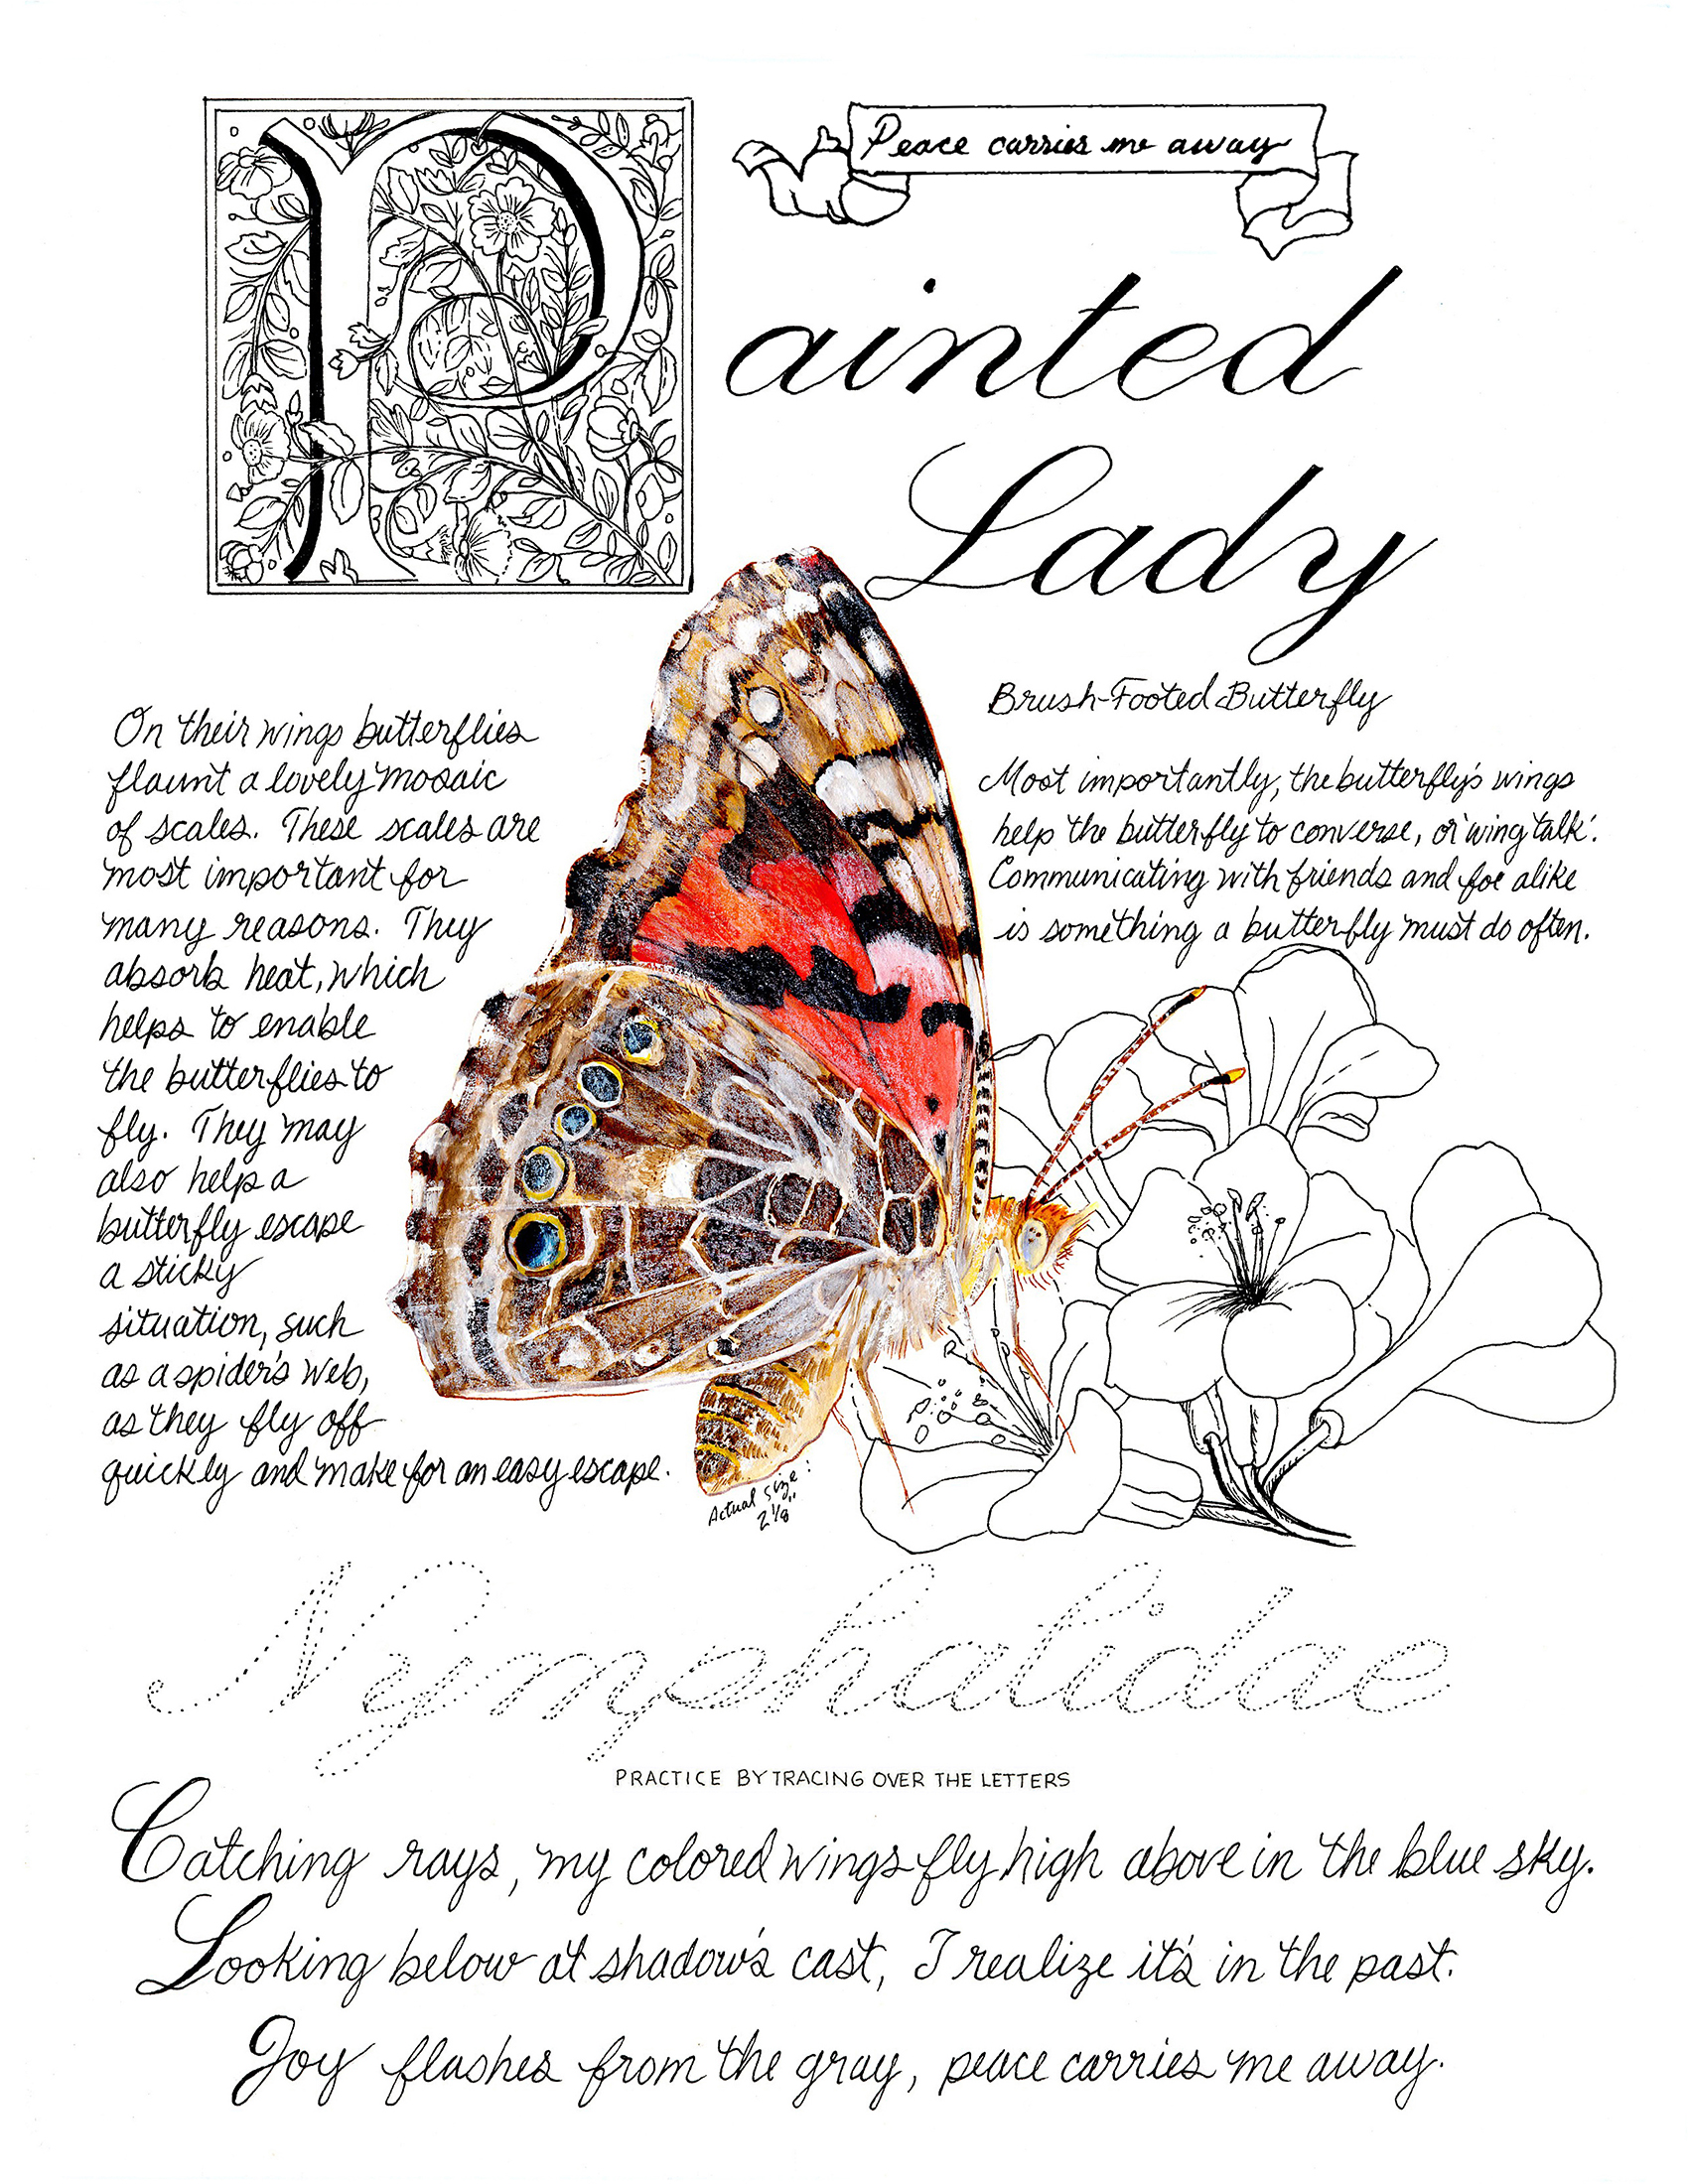 Peace carries me away
Painted
Lady
Brush-Footed Butterfly
On their wings butterflies
flaunt a lovely mosaic
of scales. These scales are
most important for
many reasons. They
absorb heat, which
helps to enable
the butterflies to
fly. They may
also help a
butterfly escape
a sticky
situation, such
as a spider's web,
as they fly off
quickly and make for an easy escape.
Most importantly, the butterfly's wings
help the butterfly to converse, or 'wing talk'.
Communicating with friends and foe alike
is something a butterfly must do often.
Actual Size:
2 1/8"
Nymphalidae
PRACTICE BY TRACING OVER THE LETTERS
Catching rays, my colored wings fly high above in the blue sky.
Looking below at shadow's cast, I realize it's in the past.
Joy flashes from the gray, peace carries me away.